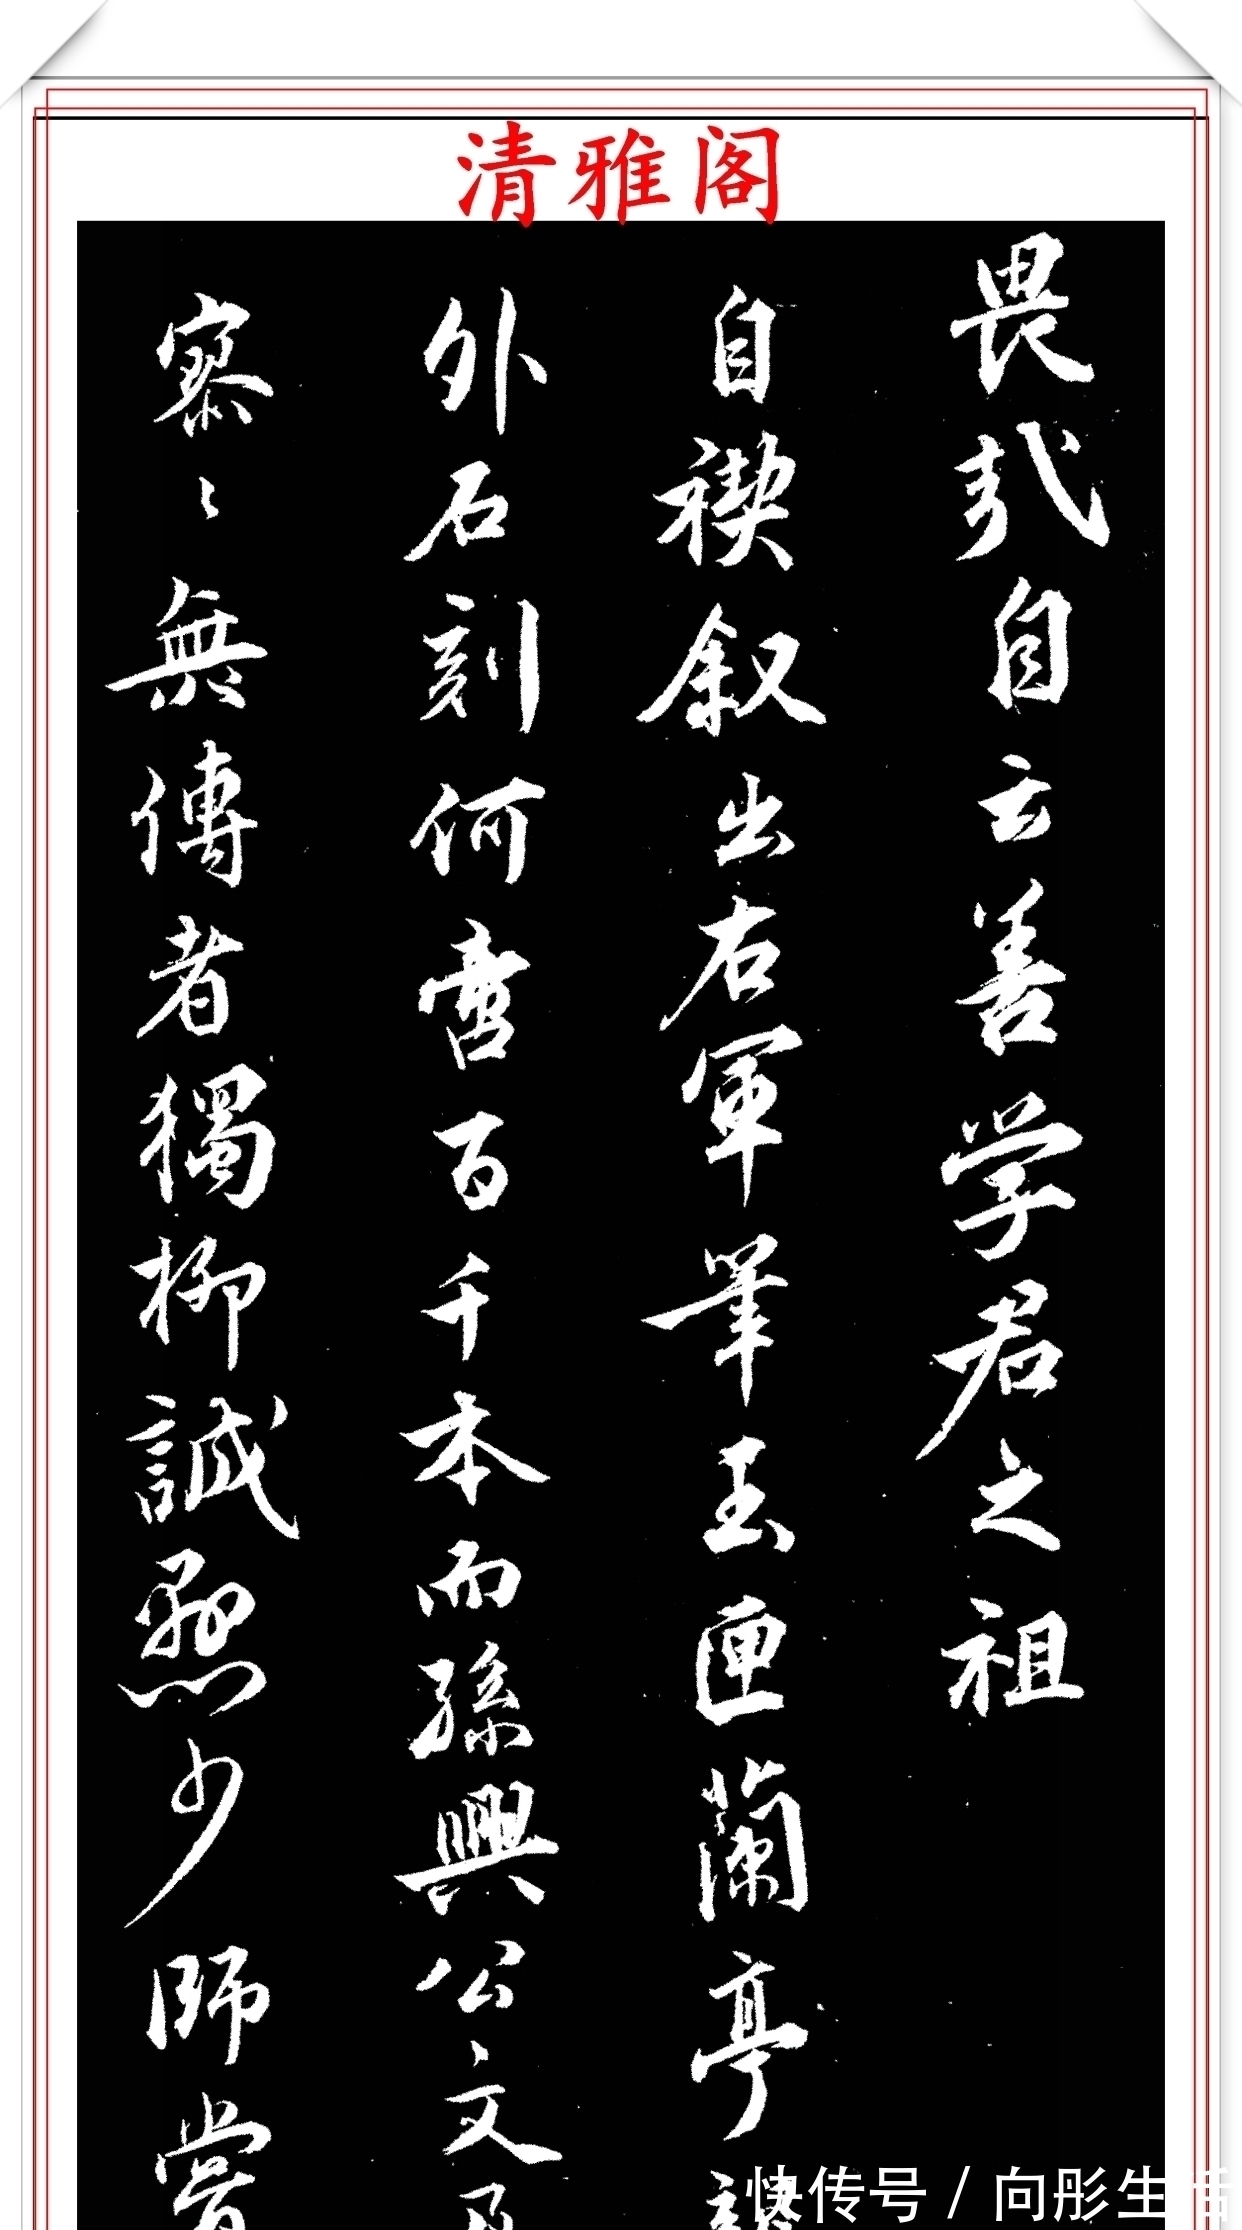 清雅阁
畏哉自云善学君之祖
自禊叙出右軍筆玉匣蘭亭
外石刻何啻百千本而孫興公文
寥〻無傳者獨柳誠懸少師嘗
快传号 / 向彤生活